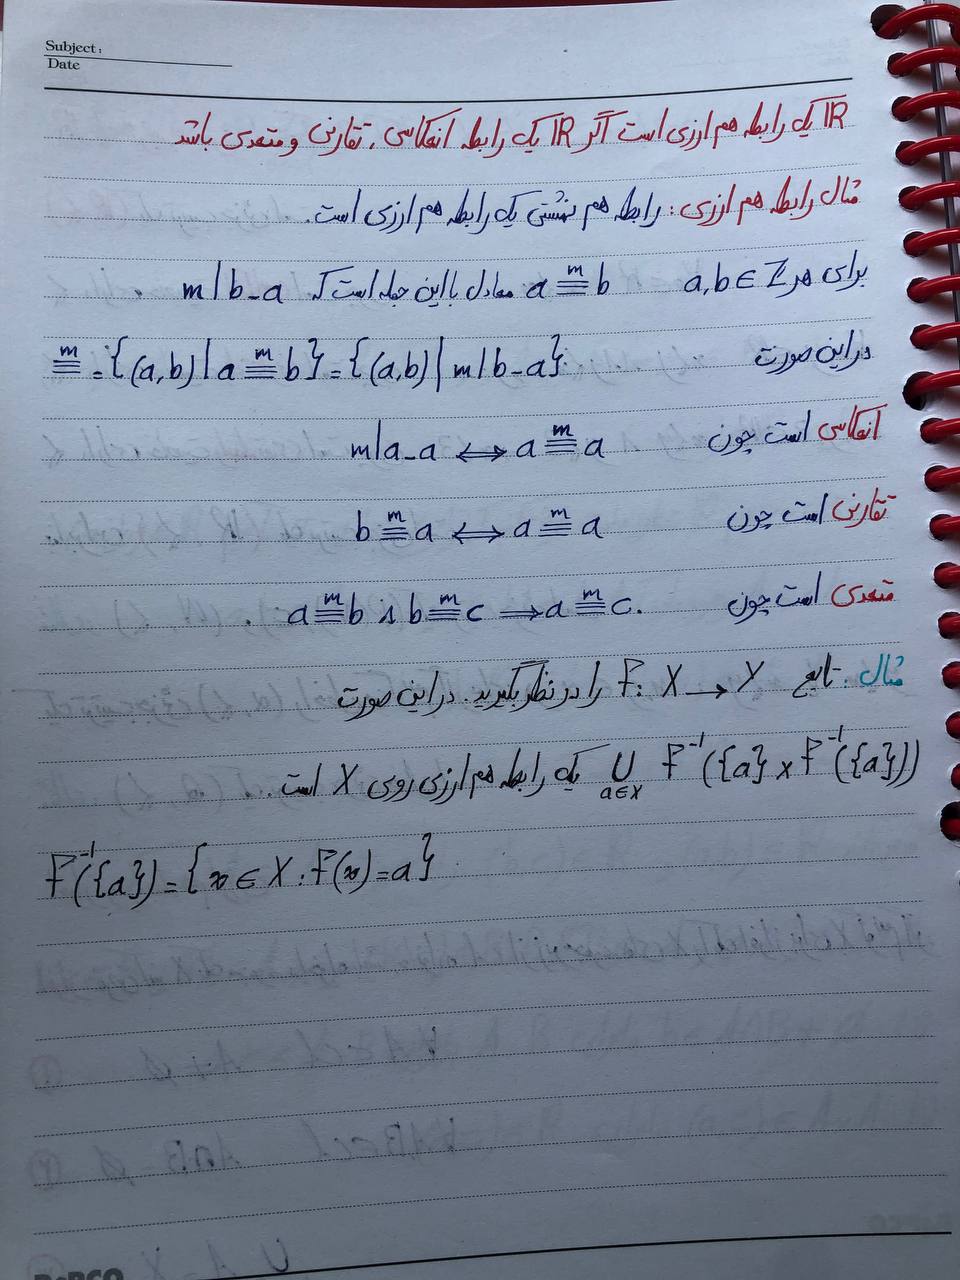 Subject:
Date
IR یک رابطه هم ارزی است اگر IR یک رابطه انعکاسی، تقارنی و متعدی باشد
مثال رابطه هم ارزی: رابطه هم نهشتی یک رابطه هم ارزی است.
برای هر a,b ∈ Z a ≡^m b معادل با این جمله است که m | b - a .
در این صورت ≡^m = {(a,b) | a ≡^m b} = {(a,b) | m | b - a}
انعکاسی است چون m | a - a ⟷ a ≡^m a
تقارنی است چون b ≡^m a ⟷ a ≡^m a
متعدی است چون a ≡^m b ∧ b ≡^m c → a ≡^m c.
مثال: تابع f: X → Y را در نظر بگیرید. در این صورت
⋃_{a∈X} f⁻¹({a} × f⁻¹({a})) یک رابطه هم ارزی روی X است.
f⁻¹({a}) = {x ∈ X : f(x) = a}